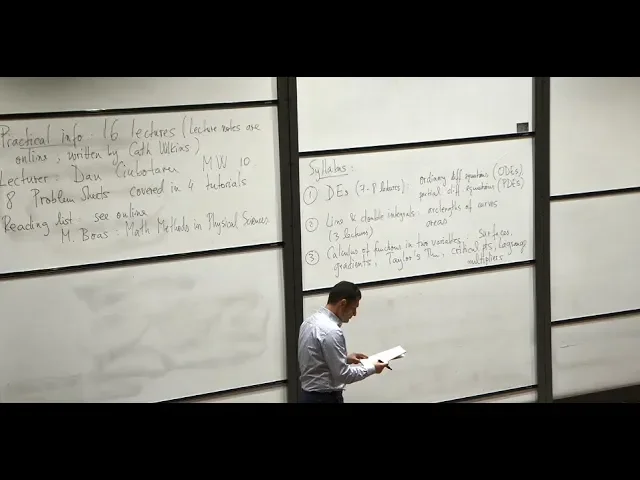 Practical info: 16 lectures (Lecture notes are
online; written by Cath Wilkins)
Lecturer: Dan Ciubotaru MW 10
8 Problem Sheets covered in 4 tutorials
Reading list: see online
M. Boas: Math Methods in Physical Sciences
Syllabus:
① DEs (7-8 lectures): ordinary diff equations (ODEs)
partial diff equations (PDEs)
② Line & double integrals: arclengths of curves
(3 lectures) areas
③ Calculus of functions in two variables: Surfaces,
gradients, Taylor's Thm, critical pts, Lagrange
multipliers